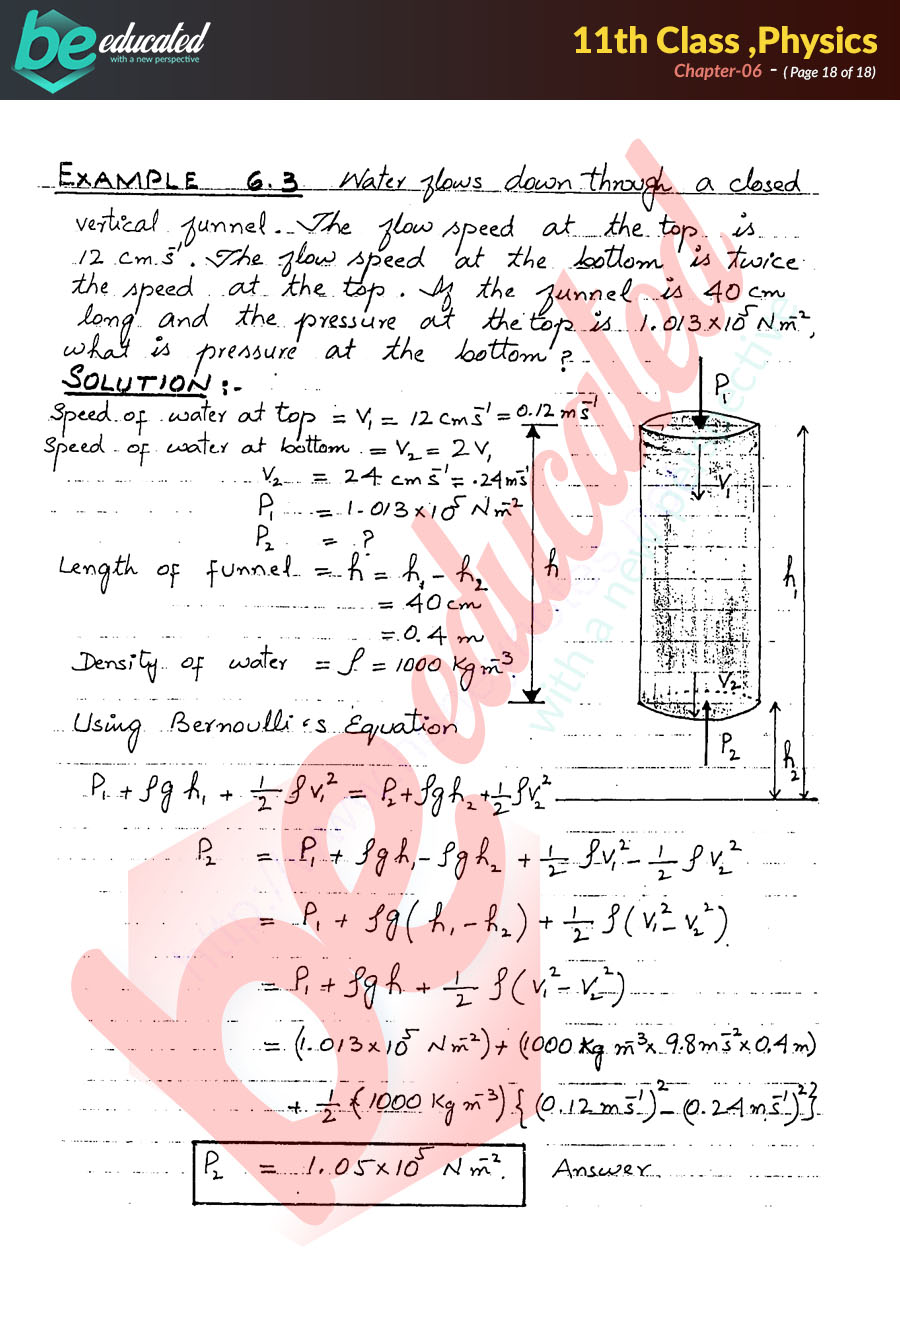 be educated
with a new perspective
11th Class ,Physics
Chapter-06 - ( Page 18 of 18)
EXAMPLE 6.3 Water flows down through a closed
vertical funnel. The flow speed at the top is
12 cm s⁻¹. The flow speed at the bottom is twice
the speed at the top. If the funnel is 40 cm
long and the pressure at the top is 1.013×10⁵ N m⁻²,
what is pressure at the bottom?
SOLUTION:-
Speed of water at top = V₁ = 12 cm s⁻¹ = 0.12 m s⁻¹
Speed of water at bottom = V₂ = 2V₁
V₂ = 24 cm s⁻¹ = .24 m s⁻¹
P₁ = 1.013×10⁵ N m⁻²
P₂ = ?
Length of funnel = h = h₁ - h₂
= 40 cm
= 0.4 m
Density of water = ρ = 1000 Kg m⁻³.
P₁
V₁
h
h₁
V₂
P₂
h₂
Using Bernoulli's Equation
P₁ + ρg h₁ + 1/2 ρv₁² = P₂ + ρgh₂ + 1/2 ρv₂²
P₂ = P₁ + ρgh₁ - ρgh₂ + 1/2 ρv₁² - 1/2 ρv₂²
= P₁ + ρg(h₁ - h₂) + 1/2 ρ(v₁² - v₂²)
= P₁ + ρgh + 1/2 ρ(v₁² - v₂²)
= (1.013×10⁵ N m⁻²) + (1000 Kg m⁻³ × 9.8 m s⁻² × 0.4 m)
+ 1/2 × (1000 Kg m⁻³) {(0.12 m s⁻¹)² - (0.24 m s⁻¹)²}
P₂ = 1.05×10⁵ N m⁻². Answer
be educated
with a new perspective